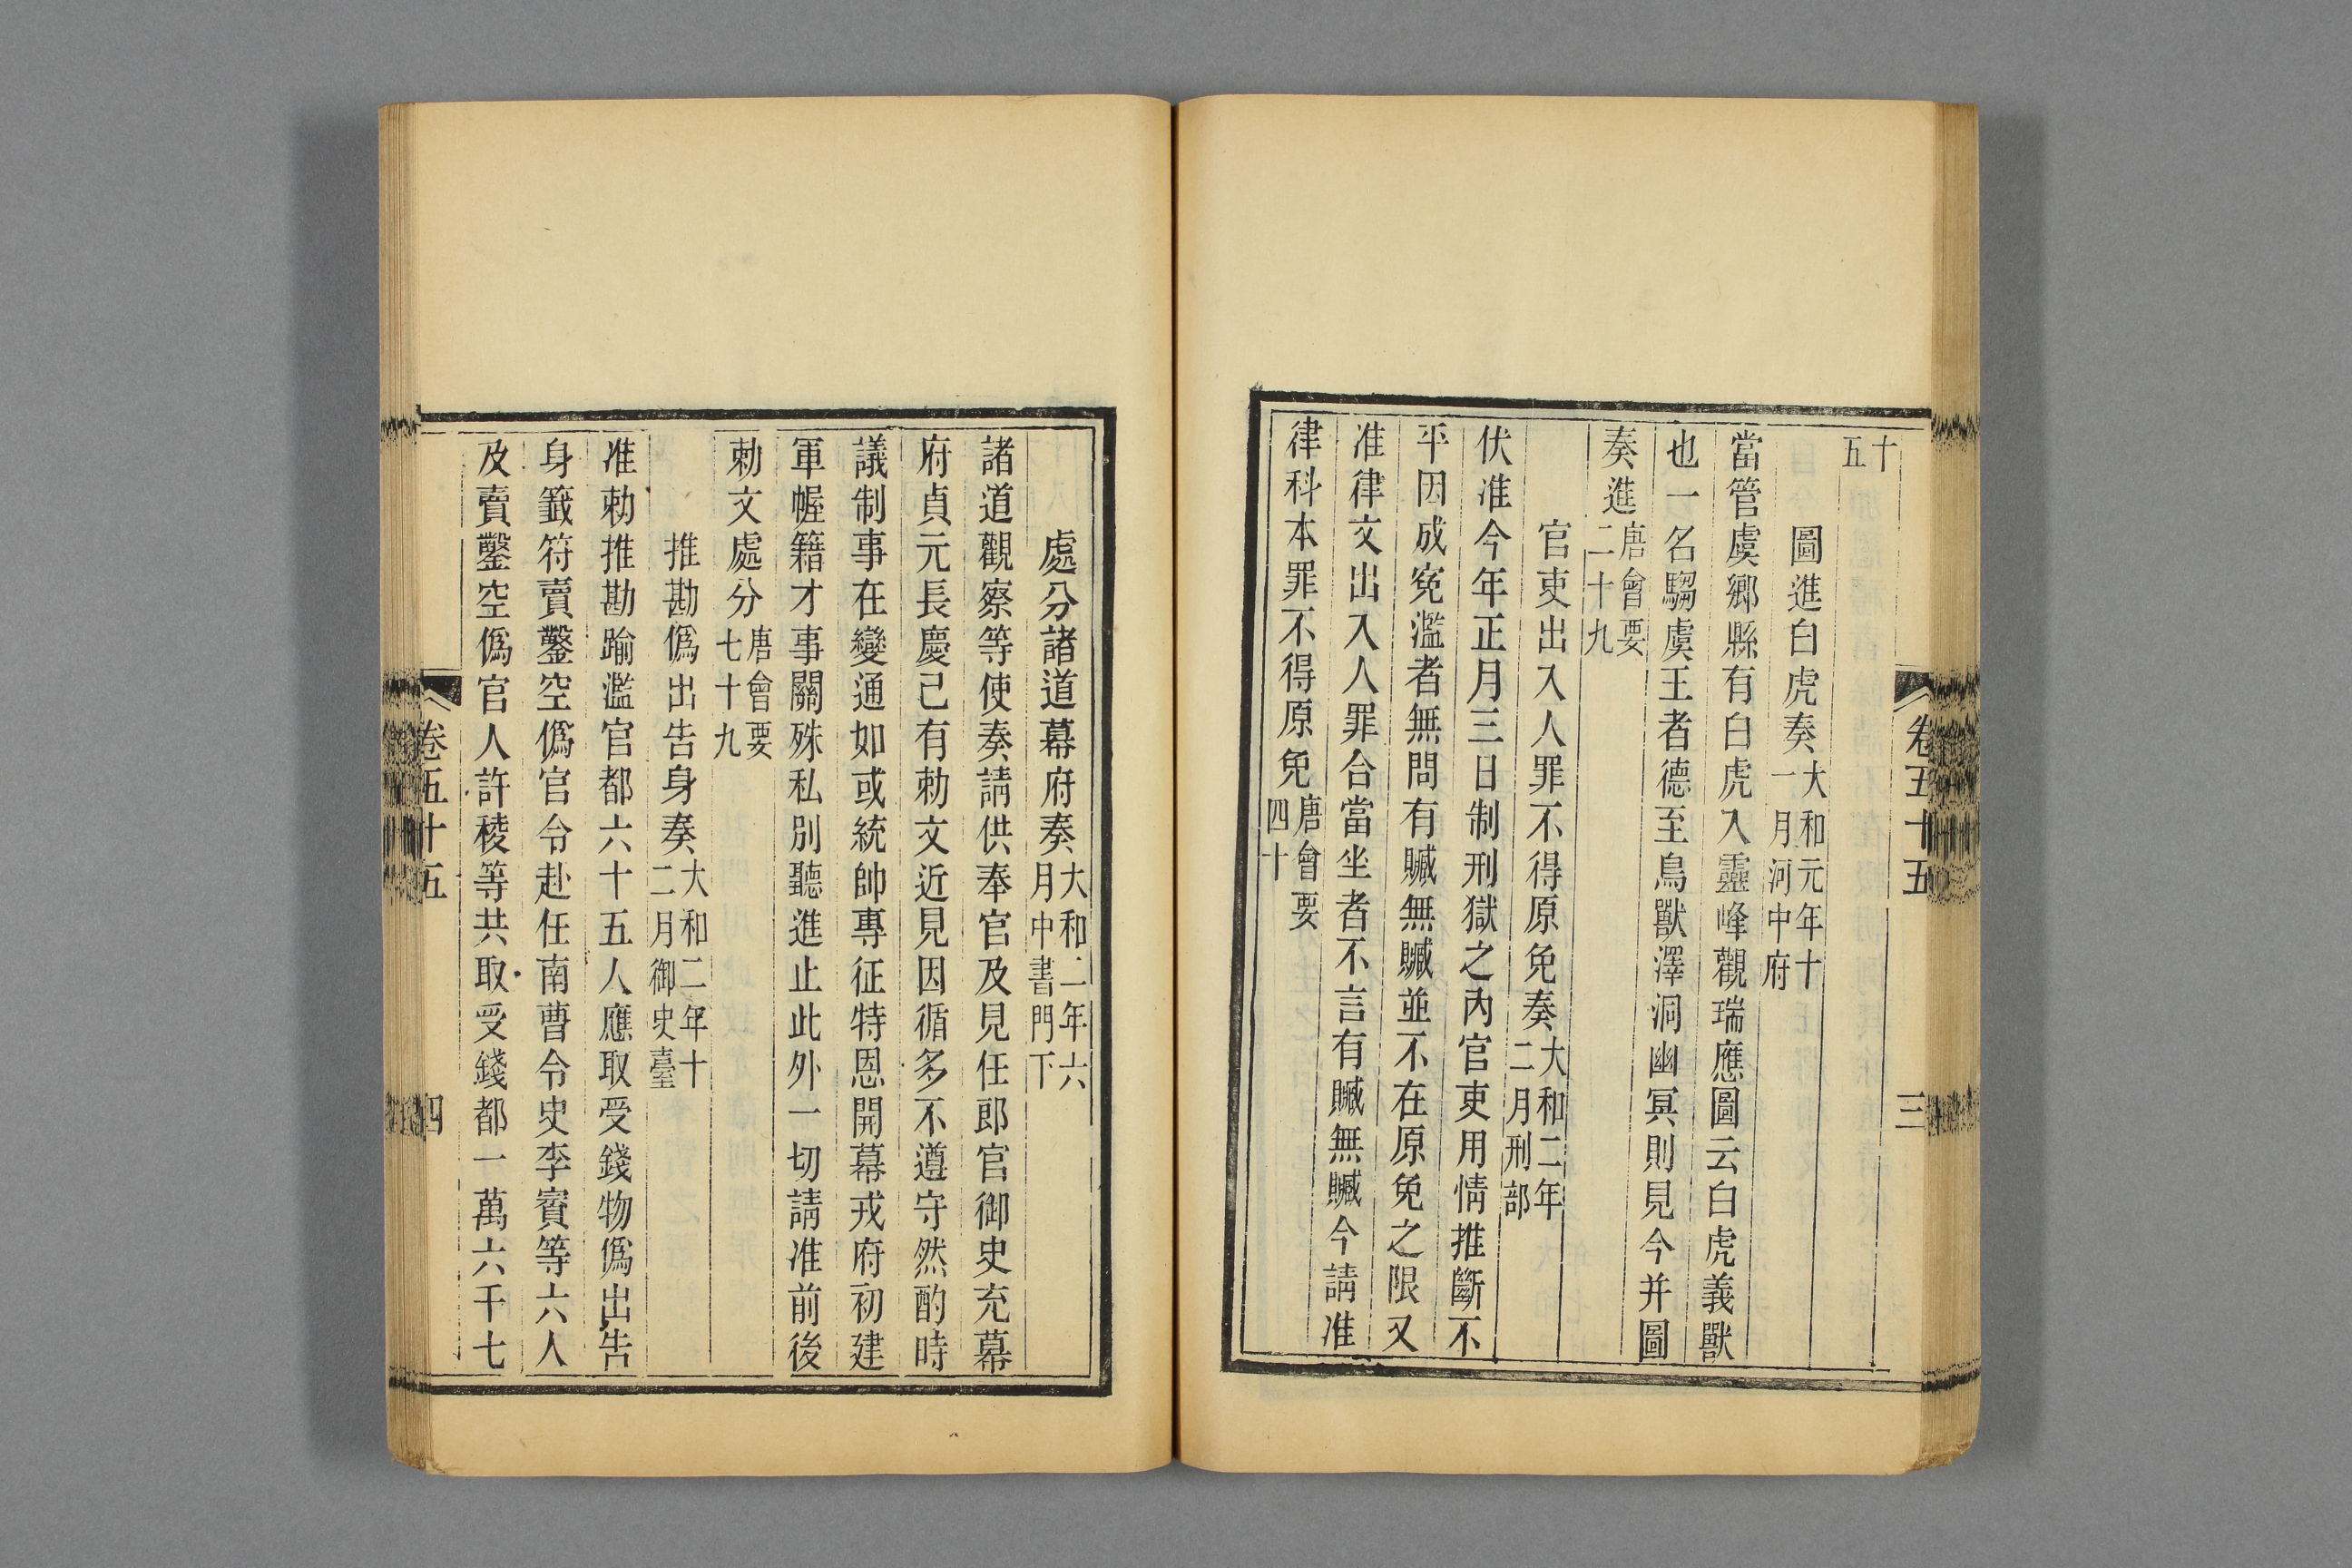 十
五
圖進白虎奏大和元年十
一月河中府
當管虞鄉縣有白虎入靈峰觀瑞應圖云白虎義獸
也一名騶虞王者德至鳥獸澤洞幽冥則見今并圖
奏進唐會要
二十九
官吏出入人罪不得原免奏大和二年
二月刑部
伏准今年正月三日制刑獄之內官吏用情推斷不
平因成寃濫者無問有贓無贓並不在原免之限又
准律文出入人罪合當坐者不言有贓無贓今請准
律科本罪不得原免唐會要
四十
卷五十五
三
處分諸道幕府奏大和二年六
月中書門下
諸道觀察等使奏請供奉官及見任郎官御史充幕
府貞元長慶已有勅文近見因循多不遵守然酌時
議制事在變通如或統帥專征特恩開幕戎府初建
軍幄籍才事關殊私別聽進止此外一切請准前後
勅文處分唐會要
七十九
推勘僞出告身奏大和二年十
二月御史臺
准勅推勘踰濫官都六十五人應取受錢物僞出告
身籤符賣鑿空僞官令赴任南曹令史李賓等六人
及賣鑿空僞官人許稜等共取受錢都一萬六千七
卷五十五
四